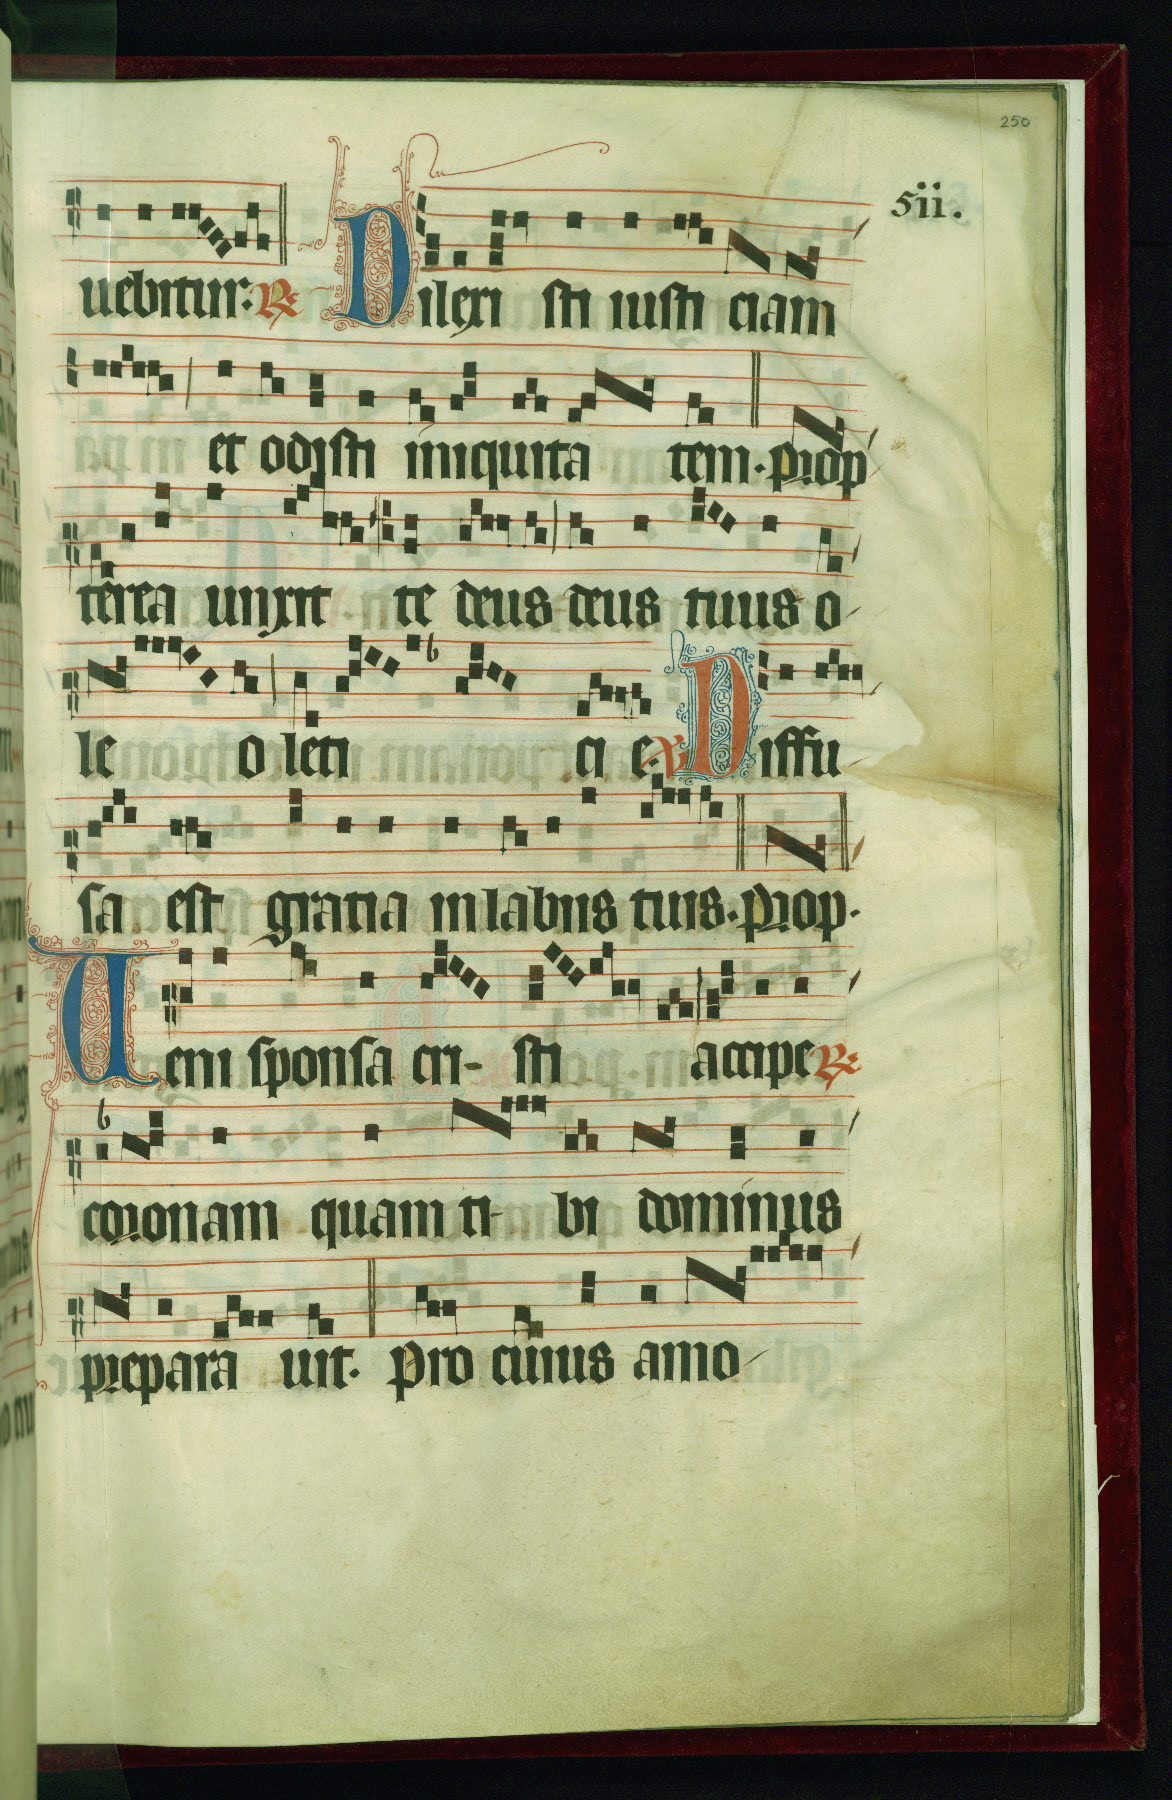 250
5ii.
uebitur: ℟ Dilexi sti iusti ciam
et odisti iniquita tem. Prop
terea unxit te deus deus tuus o
le o leti ci e. ℣ Diffu
sa est gratia in labiis tuis. Prop.
Ueni sponsa cri- sti accipe ℟
coronam quam ti- bi dominus
prepara uit. Pro cuius amo